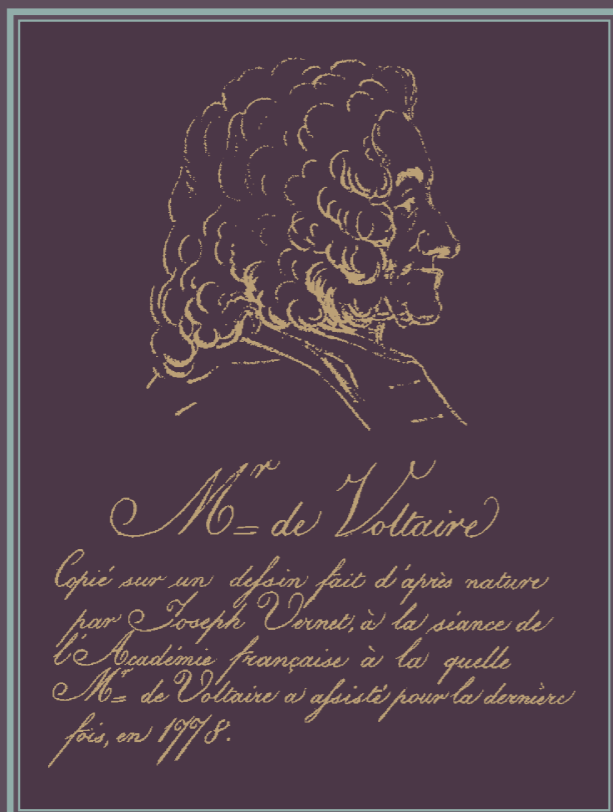 Mr= de Voltaire
Copié sur un deſsin fait d'après nature
par Joseph Vernet, à la séance de
l'Académie française à la quelle
Mr= de Voltaire a aſsisté pour la dernière
fois, en 1778.